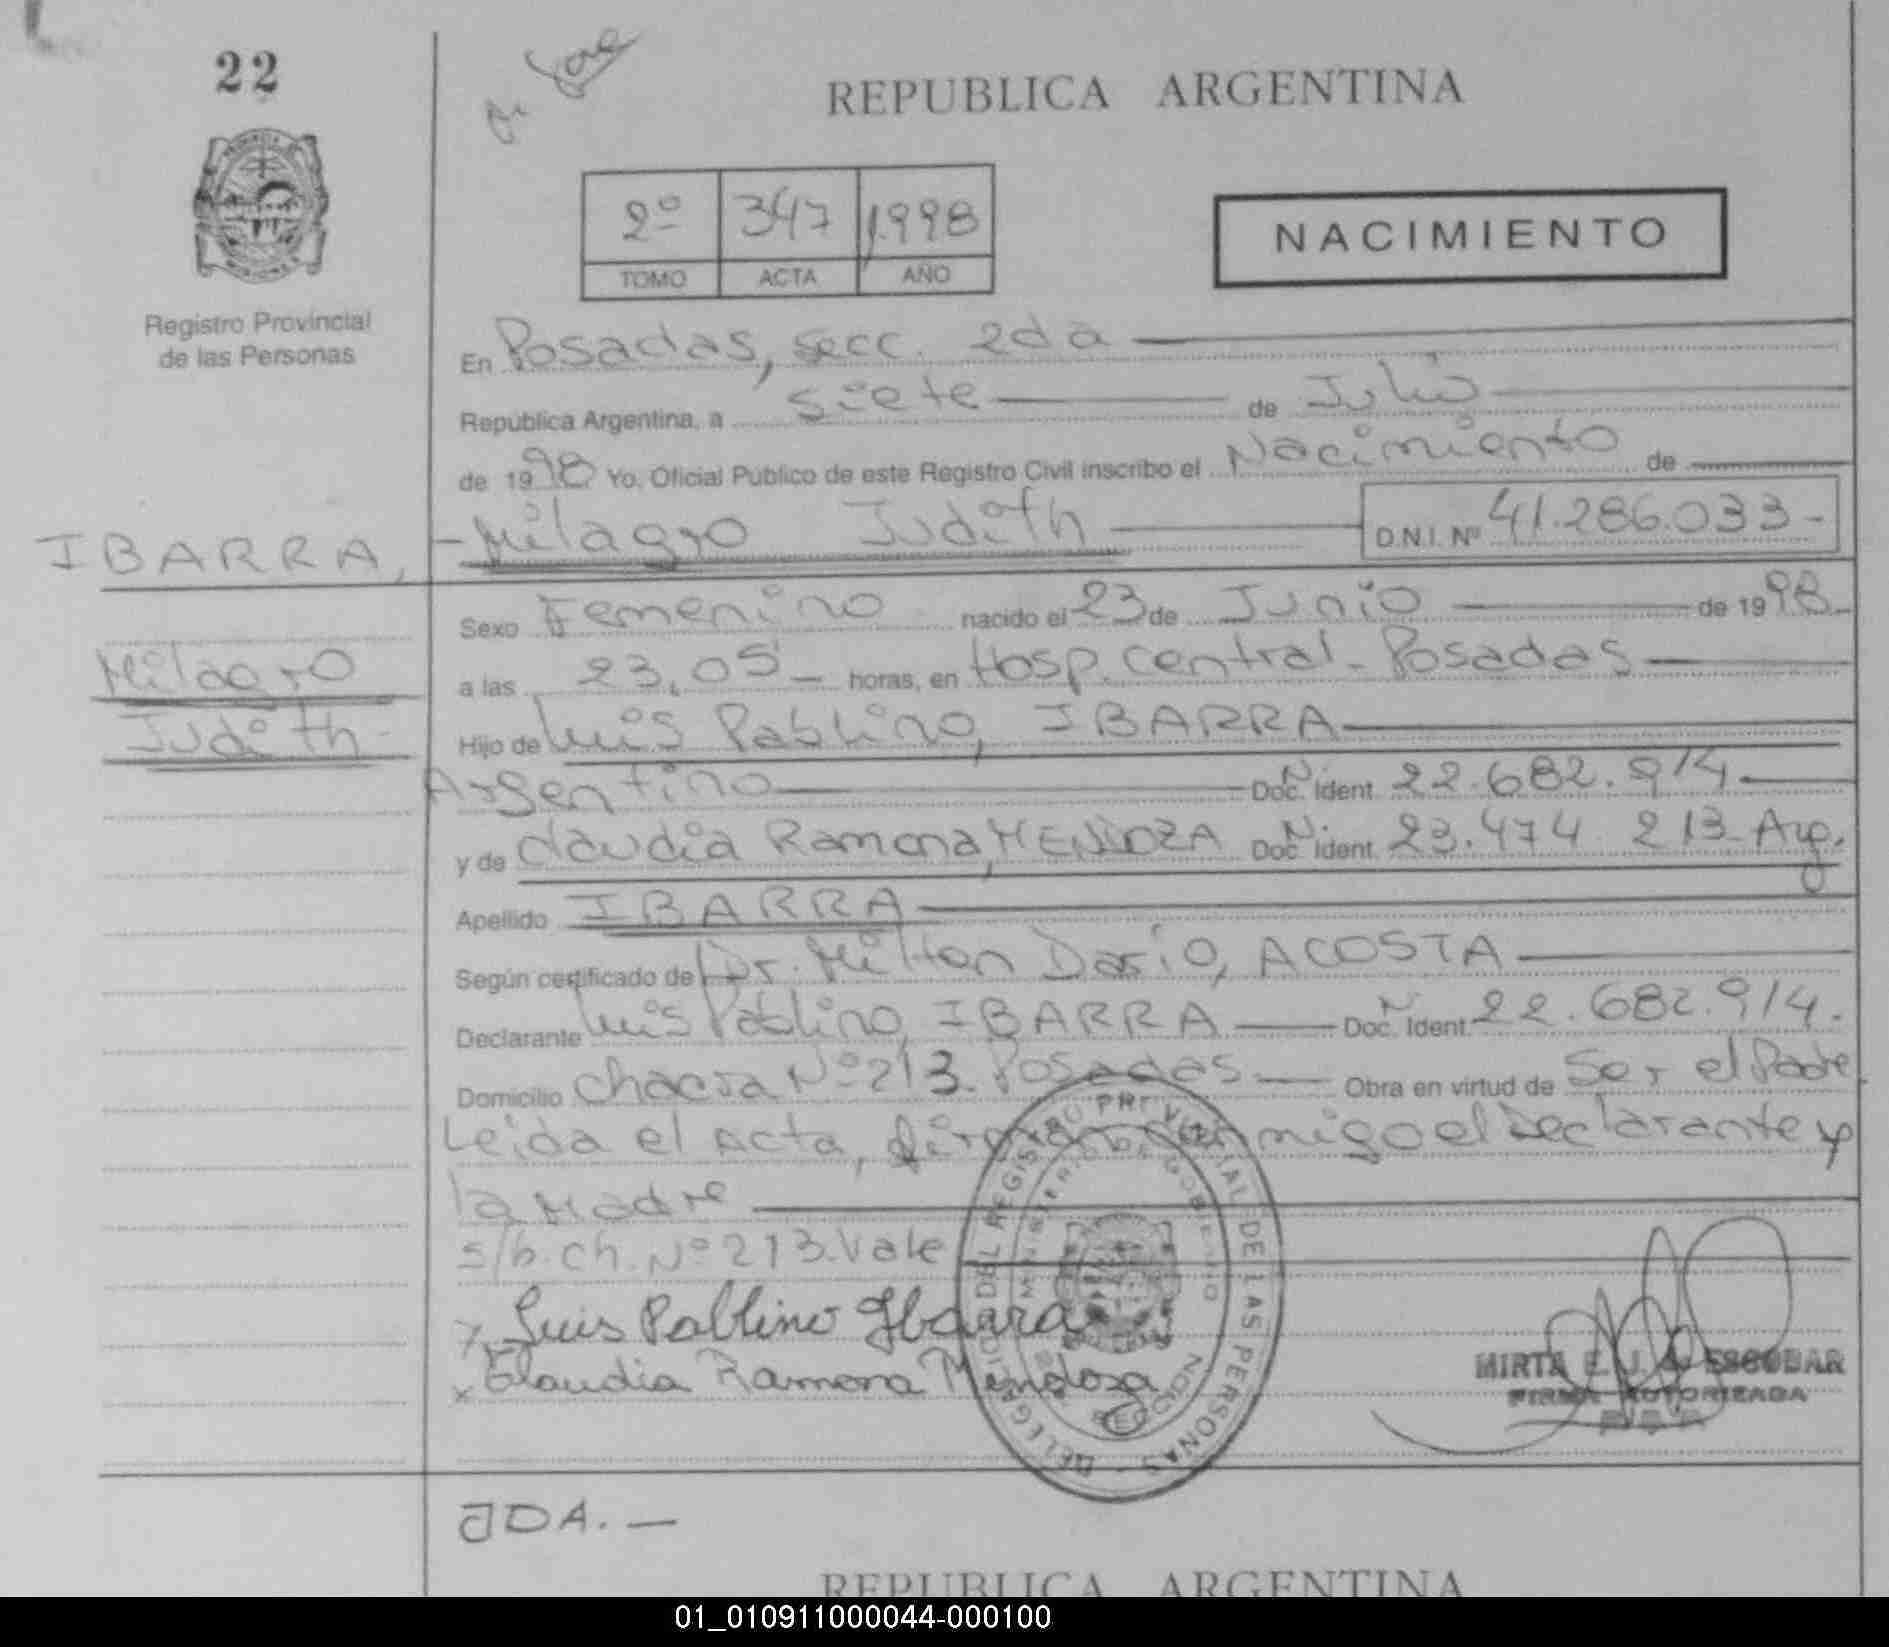 22
REPUBLICA ARGENTINA
2º 347 1.998
TOMO ACTA AÑO
NACIMIENTO
Registro Provincial
de las Personas
En Posadas, secc. 2da
República Argentina, a siete de Julio
de 1998 Yo, Oficial Público de este Registro Civil inscribo el Nacimiento de
IBARRA,
Milagro
Judith-
-Milagro Judith D.N.I. Nº 41.286.033-
Sexo Femenino nacido el 23 de Junio de 1998-
a las 23,05- horas, en Hosp. Central- Posadas
Hijo de Luis Pablino, IBARRA
Argentino Doc. N. Ident. 22.682.914
y de Claudia Ramona, MENDOZA Doc. N. Ident. 23.474 213- Arg.
Apellido IBARRA
Según certificado de Dr. Milton Dario, ACOSTA
Declarante Luis Pablino, IBARRA Doc. N. Ident. 22.682.914.
Domicilio Chacra Nº 213- Posadas Obra en virtud de Ser el Padre
Leida el Acta, firman conmigo el Declarante y
la Madre
s/b.ch. Nº 213.Vale
x Luis Pablino Ibarra
x Claudia Ramona Mendoza
DELEGACION DEL REGISTRO PROVINCIAL DE LAS PERSONAS
MINISTERIO DE GOBIERNO
MIRTA E. J. ESCOBAR
FIRMA AUTORIZADA
JDA.-
REPUBLICA ARGENTINA
01_010911000044-000100